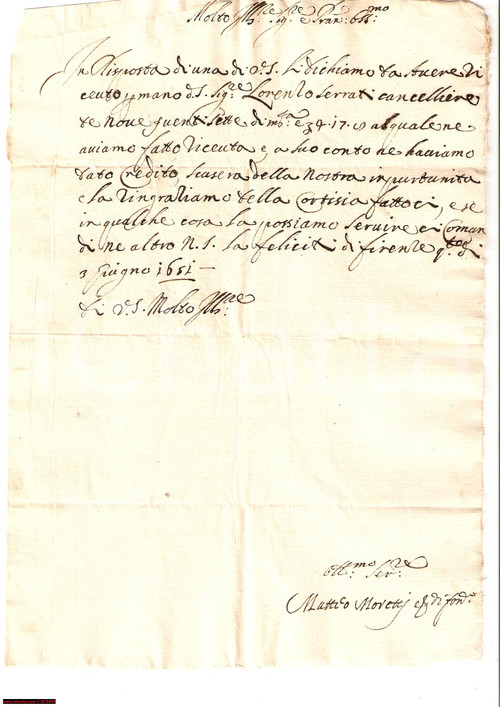 Molto Ill:re Sig:re e Pran: oss:mo
In Risposta di una di V.S. Li dichiamo da Avere Ri
ceuto p mano d.S. Sig:re Lorenzo Serrati cancelliere
al quale ne
aviamo fatto riceuta e a suo conto ne haviamo
dato Credito, scuserà della Nostra inportunita
e la Ringratiamo della Cortisia fattoci, e se
in qualche cosa la possiamo servire ci Coman
di ne altro N.S. la feliciti di firenze q:to di
3 Giugno 1651 —
di V.S. Molto Ill:re
oss:mo Ser:re
Matteo Moretti